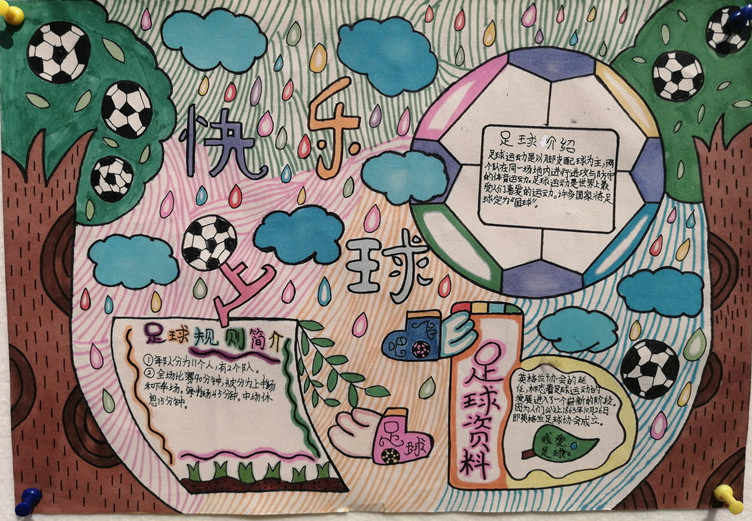 快乐
足球
足球介绍
足球运动是以脚支配球为主,两
个队在同一场地内进行进攻与防守
的体育运动。足球运动是世界上最
受人们喜爱的运动。许多国家将足
球定为“国球”。
足球规则简介
①每队分为11个人,有2个队。
②全场比赛90分钟,被分为上半场
和下半场。每半场45分钟。中场休
息15分钟。
足球
足球资料
英格兰协会的诞
生,标志着足球运动的
发展进入了一个崭新的阶段。
因为人们公认1863年10月26日
即英格兰足球协会成立。
我爱
足球